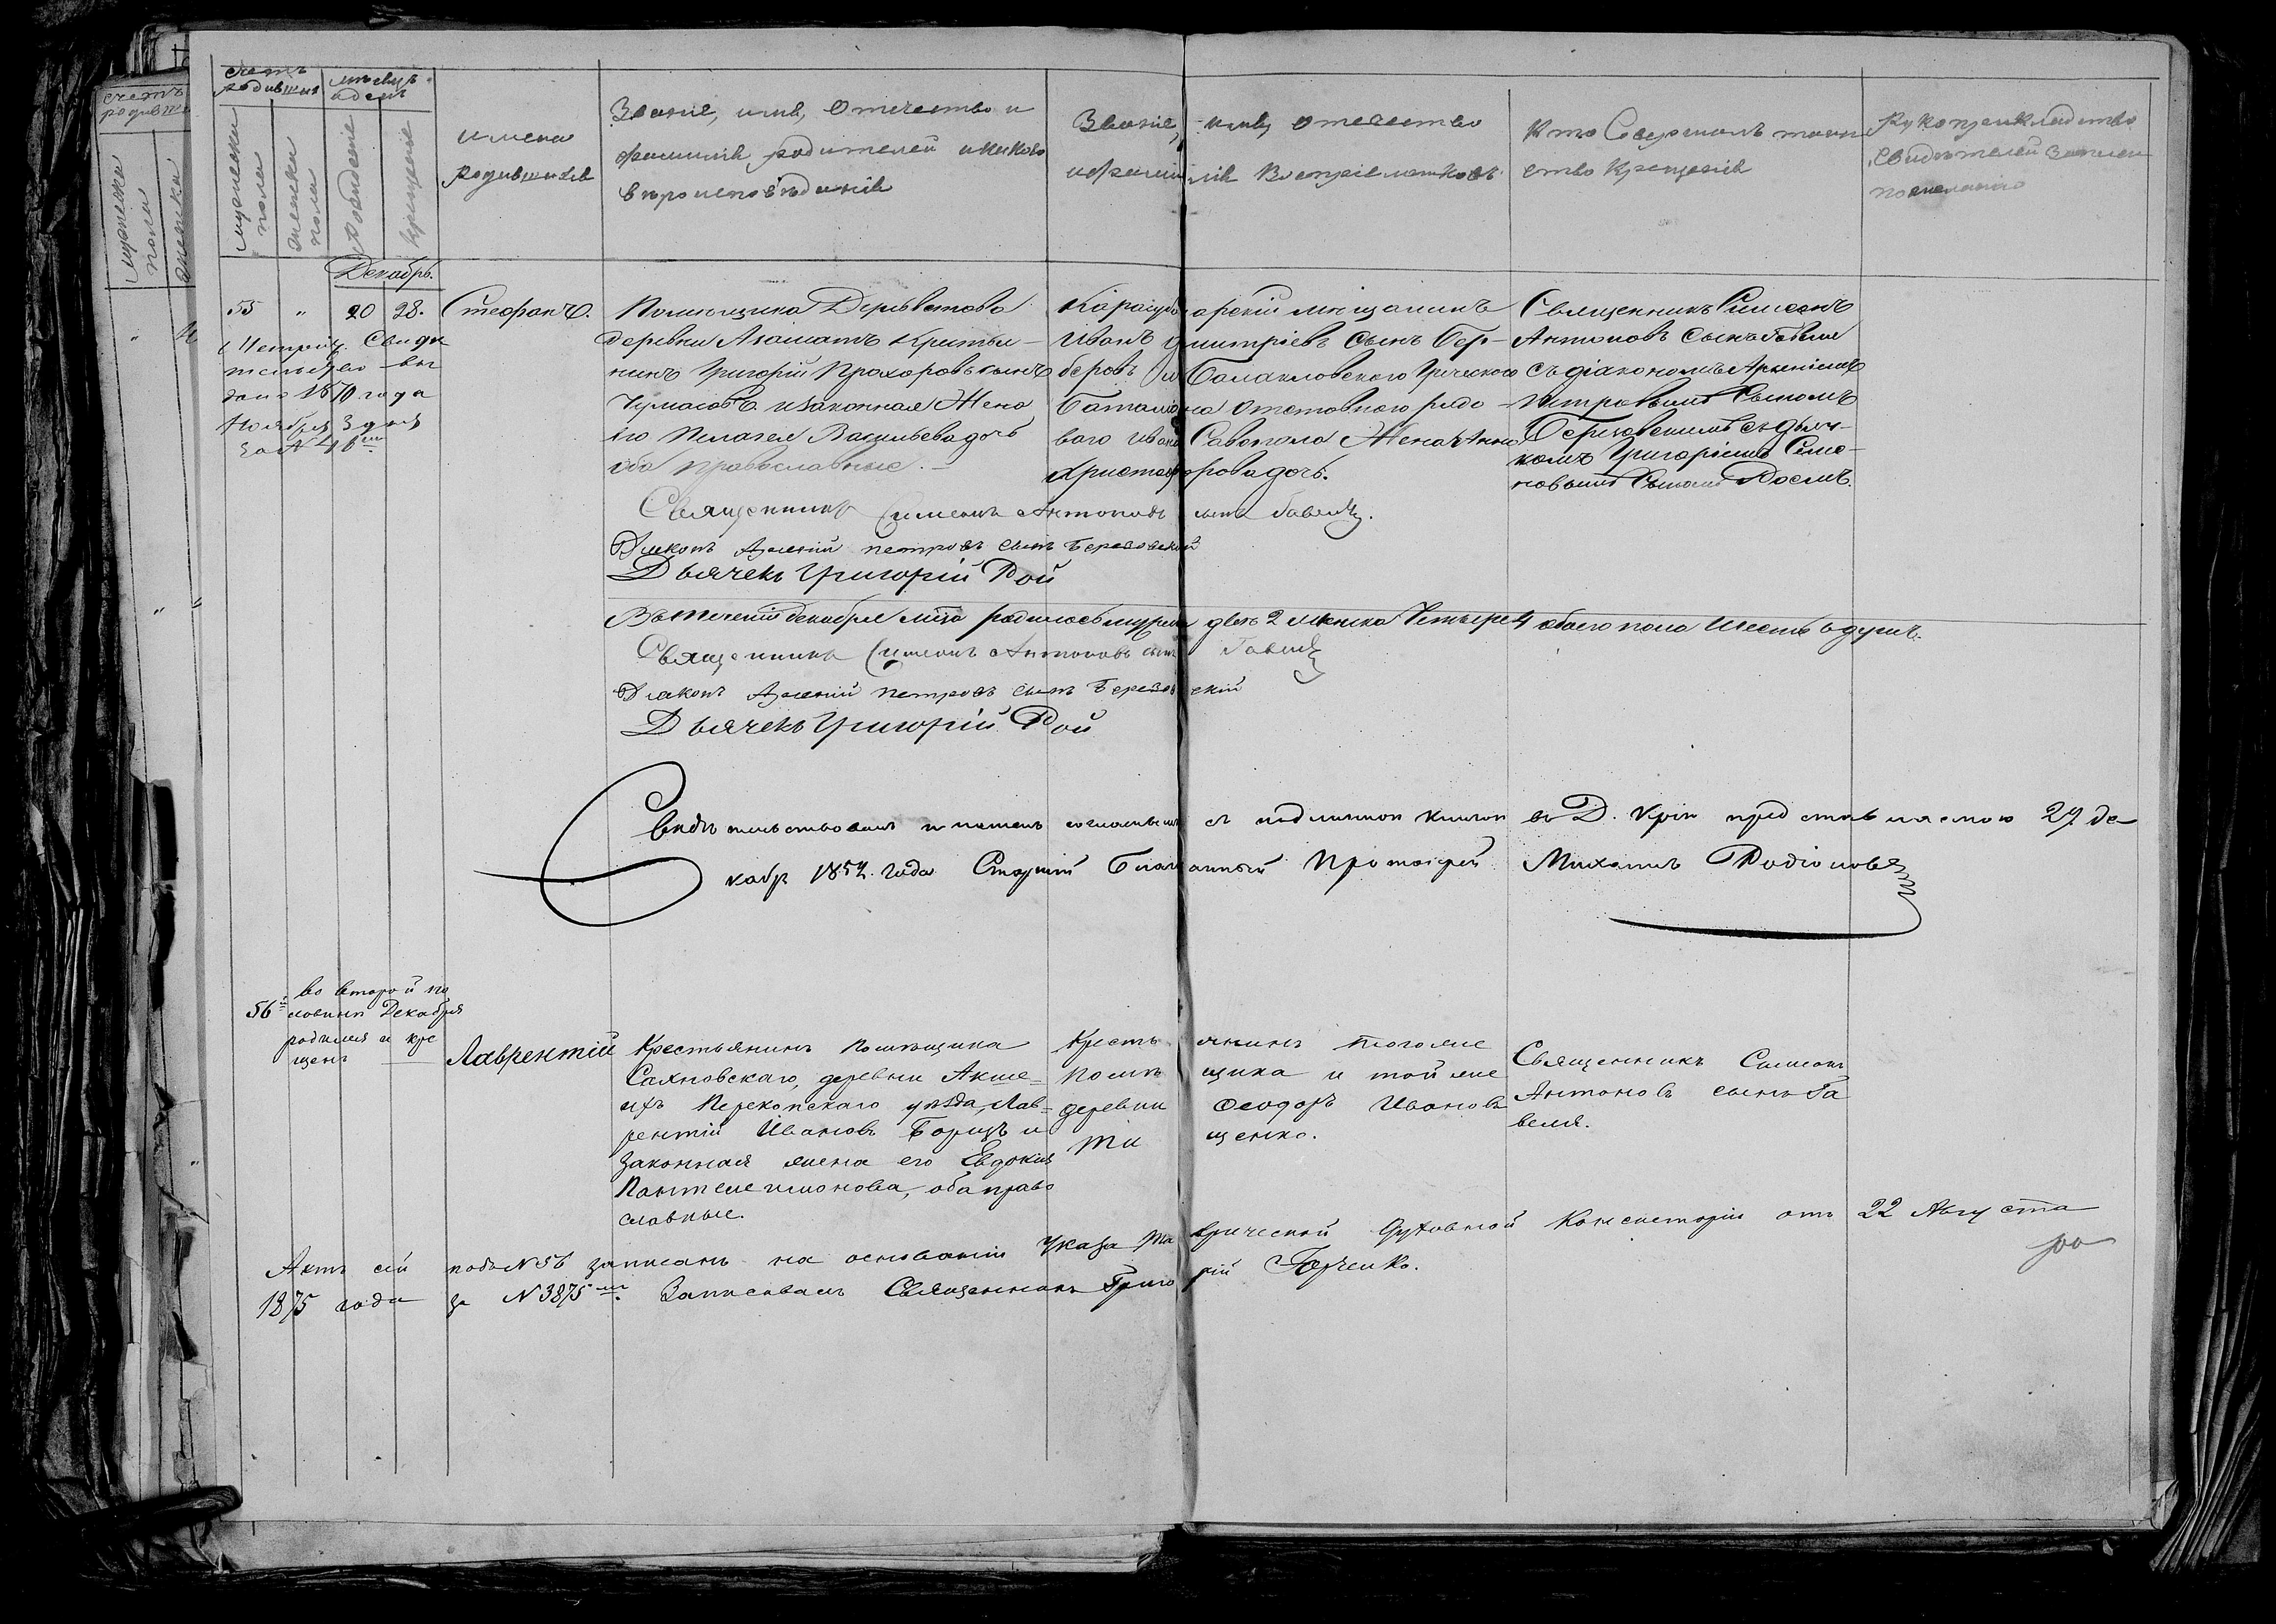 счетъ
родившихся
мѣсяцъ
и день
мужеска
пола
женска
пола
рожденіе
крещеніе
имена
родившихся
Званіе, имя, отечество и
фамилія родителей и какого
вѣроисповѣданія
Званіе, имя, отечество
и фамилія воспріемниковъ
Кто совершалъ таин
ство крещенія
Рукоприкладство
свидѣтелей записи
по желанію
счетъ
мужеска
пола
женска
Декабрь.
55 " 20 28. Стефанъ.
Метрич. Свидѣ
тельство вы
дано 1870 года
Ноября 3 дня
за №
Помещика
деревни крестья-
нинъ Григорій Прохоровъ сынъ
и законная Жена
его Пелагея Васильева дочь
оба православные.
Карасубазарскій мѣщанинъ
Иванъ Дмитріевъ сынъ
и Балаклавского Греческого
Баталіона отставного рядо-
вого Ивана Жена Анна
дочь.
Священникъ Симеонъ
Антоновъ сынъ Гавеля
съ діакономъ Арсеніемъ
Петровымъ Сыномъ
Березовскимъ съ дьяч-
комъ Григоріемъ Симе-
новымъ Сыномъ Роемъ.
Священникъ Симеонъ Антоновъ сынъ Гавеля.
Діаконъ Арсеній Петровъ сынъ Березовскій
Дьячекъ Григорій Рой
Въ теченіи декабря м̃ца родилось мужеска двѣ 2 женска Четыре 4 обоего пола Шесть 6 душъ.
Священникъ Симеонъ Антоновъ сынъ Гавеля
Діаконъ Арсеній Петровъ сынъ Березовскій
Дьячекъ Григорій Рой
Свидѣтельствовалъ и нашелъ согласнымъ съ подлинною книгою въ Д. представляемою 29 де-
кабр 185 года Старшій Благочинный Протоіерей Михаилъ Родіоновъ
56й во второй по
ловинѣ Декабря
родился и кре
щенъ
Лаврентій
Крестьянинъ помѣщика
Сахновскаго, деревни Акше-
ихъ Перекопскаго уѣзда, Лав-
рентій Ивановъ Борщъ и
законная жена его Евдокія
Пантелеимонова, оба право
славные.
Крестьянинъ того же
помѣщика и той же
деревни Ѳеодоръ Ивановъ
Тищенко.
Священникъ Симеонъ
Антоновъ сынъ Га
веля.
Актъ сей подъ №56 записанъ на основаніи Указа Таврической Духовной Консисторіи отъ 22 Августа
1875 года за №3875мъ. Записывалъ Священникъ Григорій